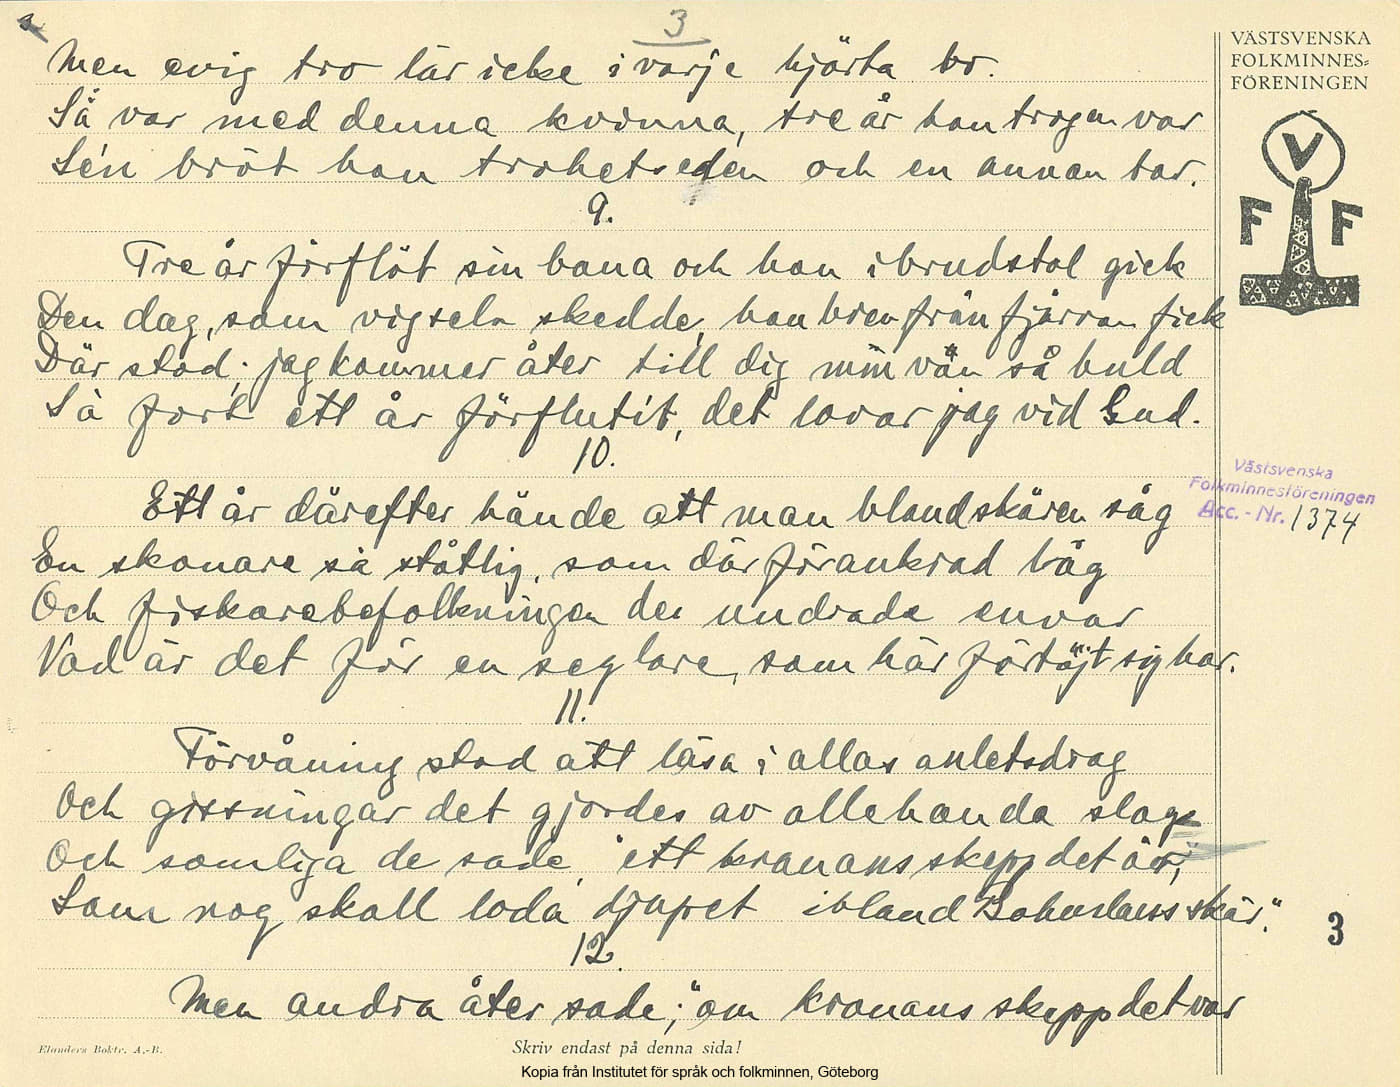 3
Men evig tro lär icke i varje hjärta bo.
Så var med denna kvinna, tre år hon trogen var
Se'n bröt hon trohetseden och en annan tar.
9.
Tre år förflöt sin bana och hon i brudstol gick
Den dag, som vigseln skedde, hon brev från fjärran fick
Där stod; jag kommer åter till dig min vän så huld
Så fort ett år förflutit, det lovar jag vid Gud.
10.
Ett år därefter hände att man bland skären såg
En skonare så ståtlig, som där förankrad låg
Och fiskarebefolkningen der undrade envar
Vad är det för en seglare, som här förtöjt sig har.
11.
Förvåning stod att läsa i allas anletsdrag
Och gissningar det gjordes av allehanda slags
Och somliga de sade, "ett kronans skepp det är,
Som nog skall loda djupet ibland Bohusläns skär."
12.
Men andra åter sade; "om kronans skepp det var
VÄSTSVENSKA
FOLKMINNES-
FÖRENINGEN
V
F F
Västsvenska
Folkminnesföreningen
Acc.-Nr. 1374
3
Elanders Boktr. A.-B.
Skriv endast på denna sida!
Kopia från Institutet för språk och folkminnen, Göteborg